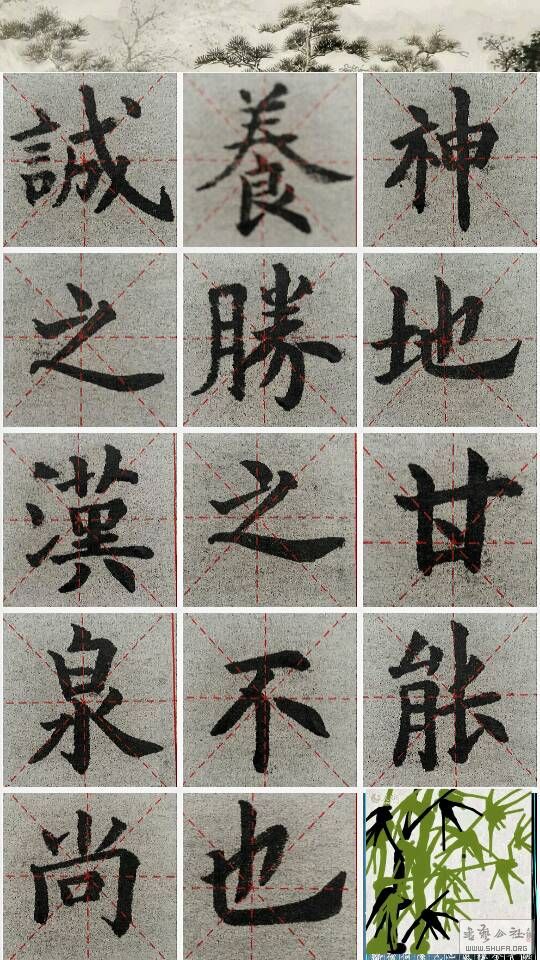 誠養神
之勝地
漢之甘
泉不能
尚也
WWW.SHUFA.ORG